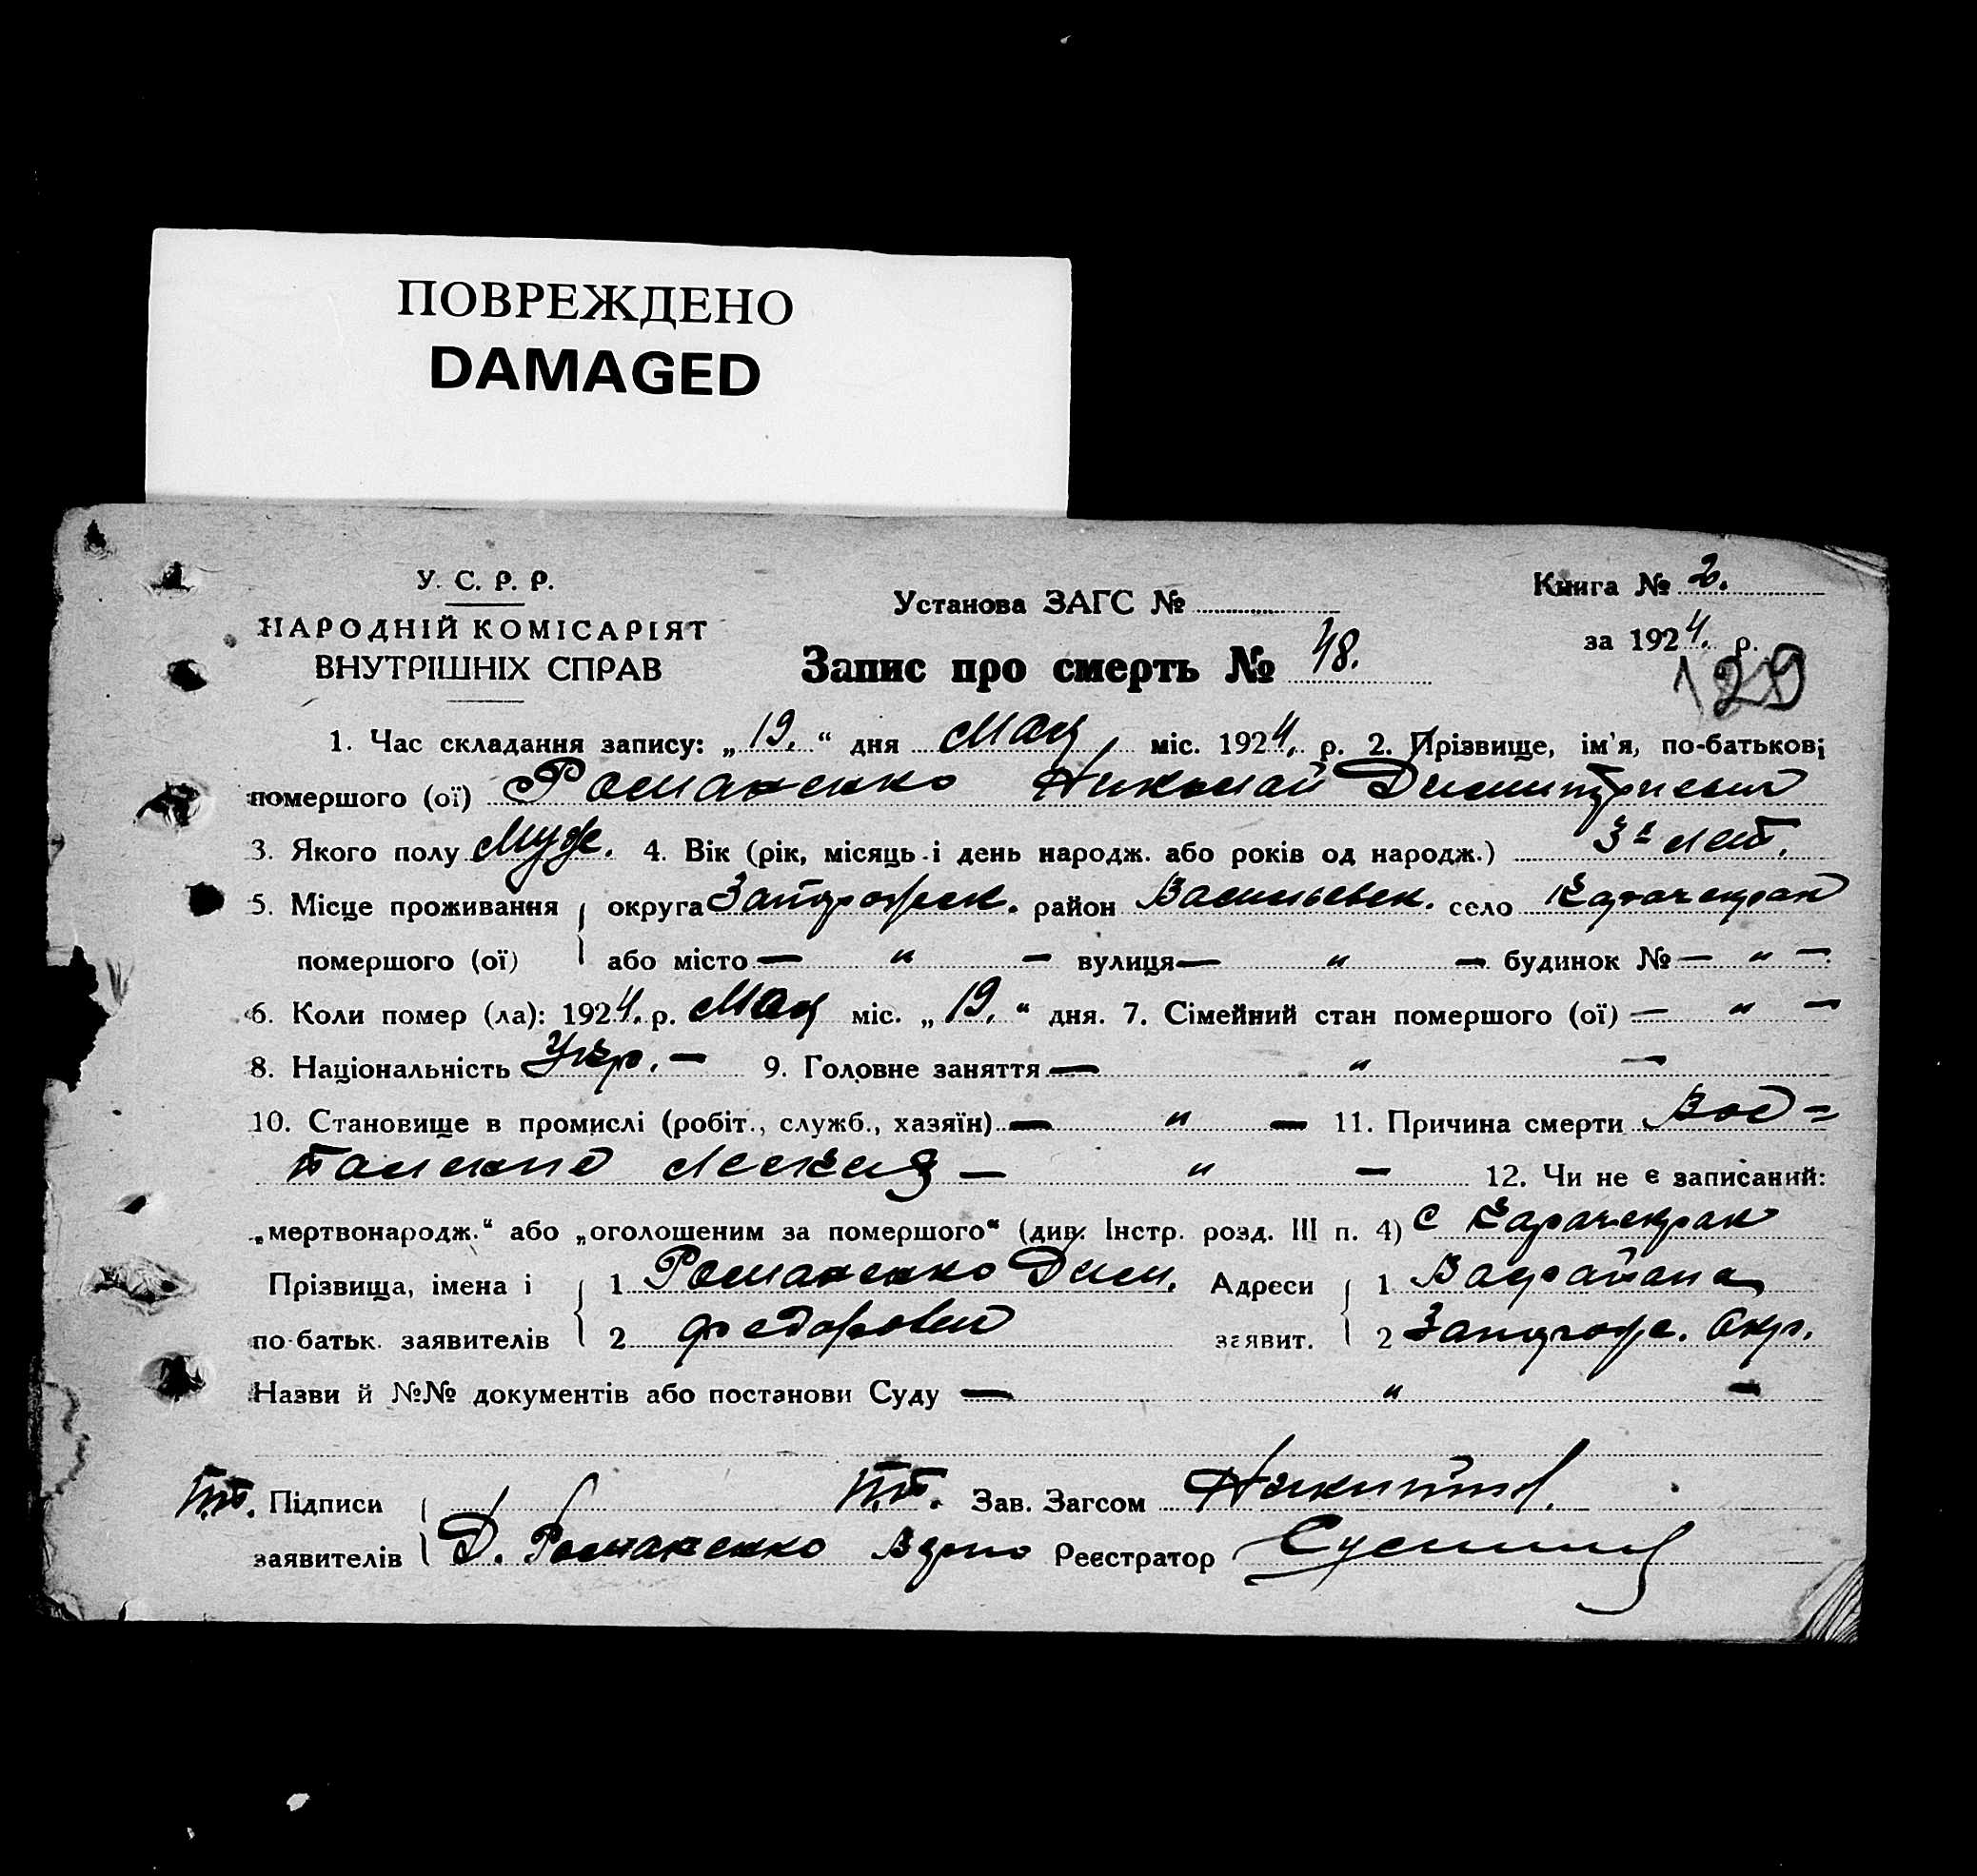 ПОВРЕЖДЕНО
DAMAGED
У. С. Р. Р.
НАРОДНІЙ КОМІСАРІЯТ
ВНУТРІШНІХ СПРАВ
Установа ЗАГС №
Книга № 2.
за 1924. р.
129
Запис про смерть № 48.
1. Час складання запису: „19.“ дня Мая міс. 1924. р. 2. Прізвище, ім'я, по-батькові
помершого (ої) Романенко Николай Димитриевич
3. Якого полу Муж. 4. Вік (рік, місяць і день народж. або років од народж.) 3 лет.
5. Місце проживання округа Запорожск. район Васильевск. село Карачекрак
помершого (ої) або місто — " — вулиця — " — будинок № — " —
6. Коли помер (ла): 1924. р. Мая міс. „19.“ дня. 7. Сімейний стан помершого (ої) — " —
8. Національність Укр. — 9. Головне заняття — " —
10. Становище в промислі (робіт., служб., хазяїн) — " — 11. Причина смерти Вос=
" — 12. Чи не є записаний:
„мертвонародж.“ або „оголошеним за помершого“ (див. Інстр. розд. III п. 4) С Карачекрак
Прізвища, імена і 1 Романенко Дим. Адреси 1 Вас района
по-батьк. заявителів 2 Федорович заявит. 2 Запорож. Окр.
Назви й №№ документів або постанови Суду — " —
Підписи Зав. Загсом Никитин
заявителів Д. Романенко Верно Реєстратор